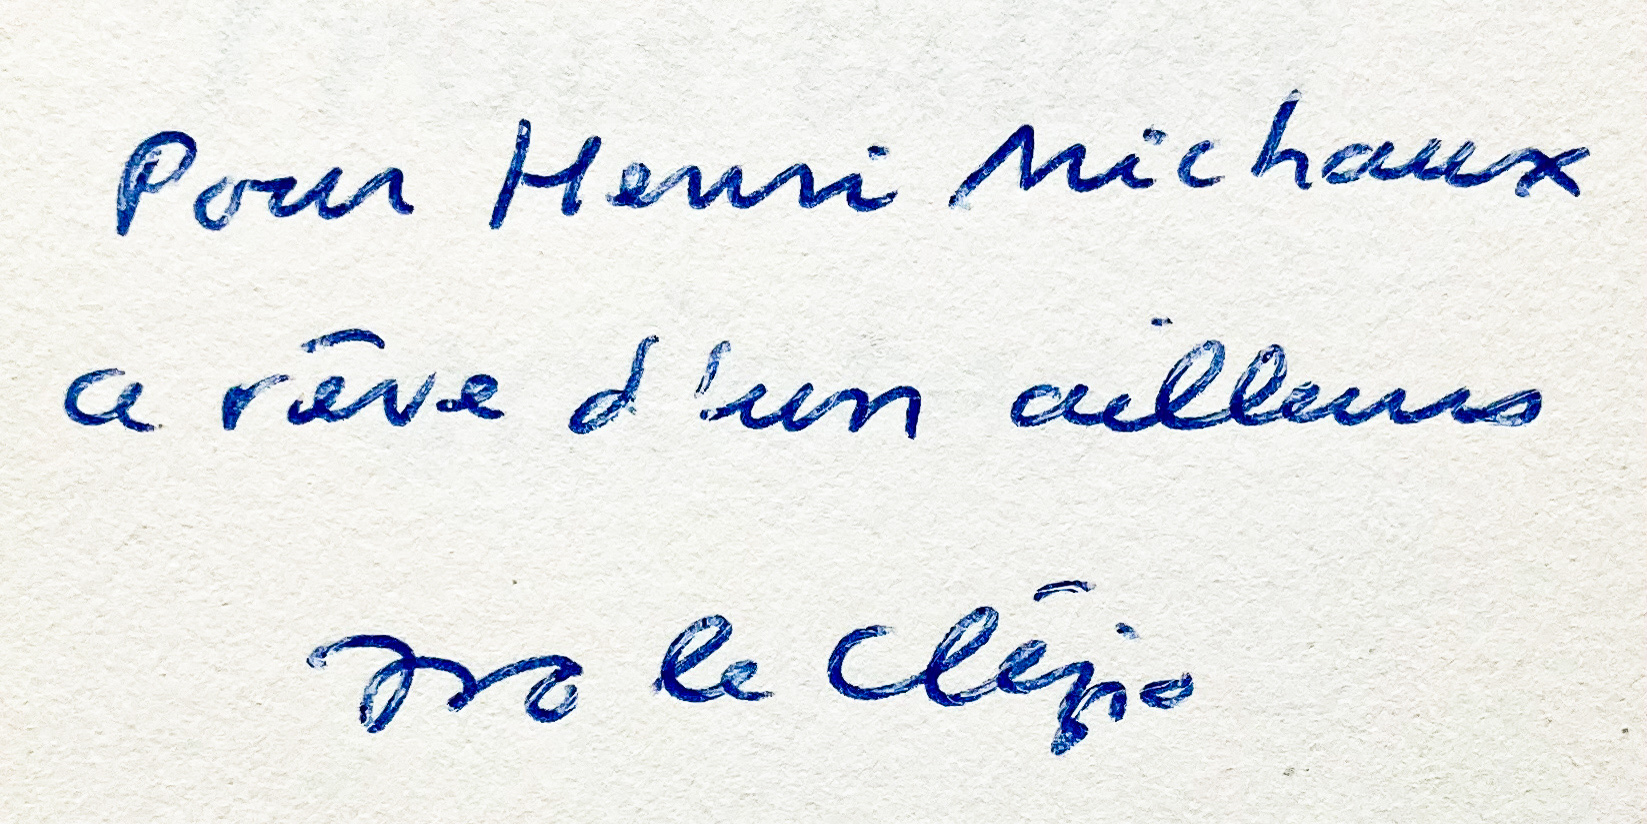 Pour Henri Michaux
ce rêve d'un ailleurs
JMG le Clézio